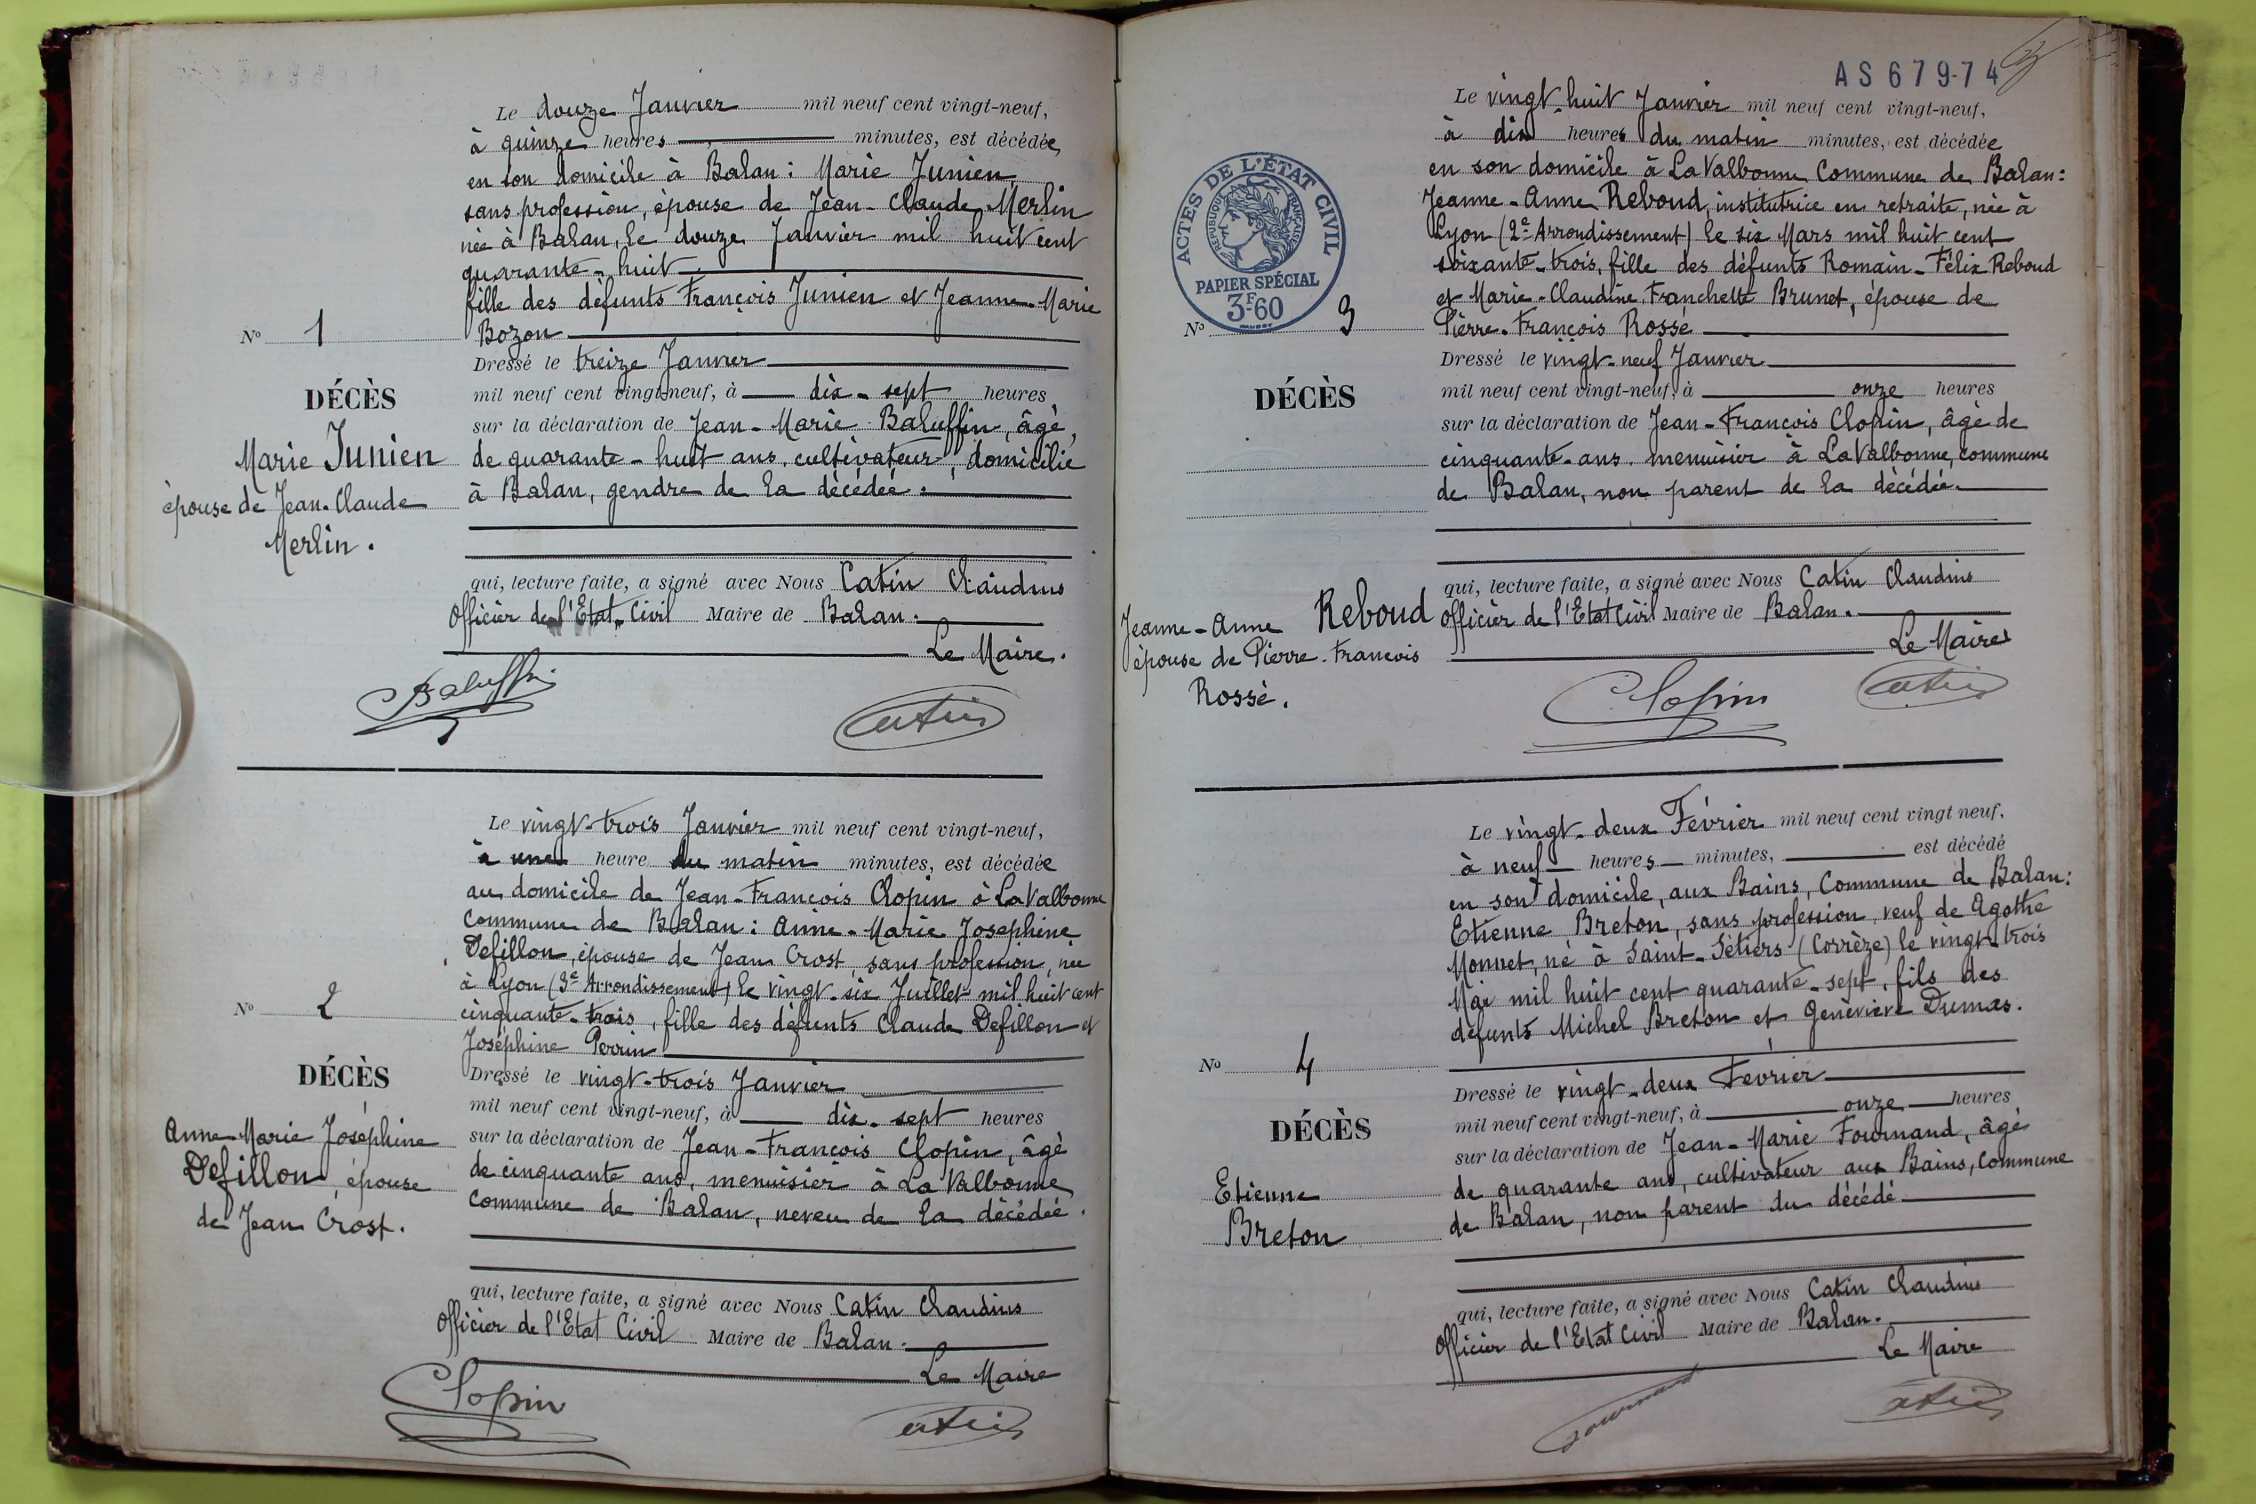 Le douze Janvier mil neuf cent vingt-neuf,
à quinze heures minutes, est décédée
en son domicile à Balan : Marie Junien,
sans profession, épouse de Jean-Claude Merlin
née à Balan, le douze Janvier mil huit cent
quarante-huit
fille des défunts François Junien et Jeanne-Marie
Bozon
No 1
Dressé le treize Janvier
DÉCÈS
mil neuf cent vingt-neuf, à dix-sept heures
sur la déclaration de Jean-Marie Baluffin, âgé
Marie Junien
de quarante-huit ans, cultivateur, domicilié
épouse de Jean-Claude
à Balan, gendre de la décédée.
Merlin.
qui, lecture faite, a signé avec Nous Catin Claudius
Officier de l'Etat-Civil Maire de Balan.
Le Maire.
Baluffin
Catin
Le vingt-trois Janvier mil neuf cent vingt-neuf,
à une heure du matin minutes, est décédée
au domicile de Jean-François Clopin à La Valbonne
Commune de Balan : Anne-Marie Josephine
Defillon, épouse de Jean Crost, sans profession, née
à Lyon (3e Arrondissement) le vingt-six Juillet mil huit cent
No 2
cinquante-trois, fille des défunts Claude Defillon et
Joséphine Perrin
DÉCÈS
Dressé le vingt-trois Janvier
mil neuf cent vingt-neuf, à dix-sept heures
Anne-Marie Joséphine
sur la déclaration de Jean-François Clopin, âgé
Defillon, épouse
de cinquante ans, menuisier à La Valbonne
de Jean Crost.
Commune de Balan, neveu de la décédée.
qui, lecture faite, a signé avec Nous Catin Claudius
Officier de l'Etat Civil Maire de Balan.
Le Maire
Clopin
Catin
AS 679-74
ACTES DE L'ÉTAT CIVIL
RÉPUBLIQUE FRANÇAISE
PAPIER SPÉCIAL
3F60
Le vingt-huit Janvier mil neuf cent vingt-neuf,
à dix heures du matin minutes, est décédée
en son domicile à La Valbonne Commune de Balan :
Jeanne-Anne Reboud, institutrice en retraite, née à
Lyon (2e Arrondissement) le six Mars mil huit cent
soixante-trois, fille des défunts Romain-Félix Reboud
et Marie-Claudine Franchette Brunet, épouse de
No 3
Pierre-François Rossé
Dressé le vingt-neuf Janvier
DÉCÈS
mil neuf cent vingt-neuf, à onze heures
sur la déclaration de Jean-François Clopin, âgé de
cinquante-ans, menuisier à La Valbonne, commune
de Balan, non parent de la décédée.
qui, lecture faite, a signé avec Nous Catin Claudius
Jeanne-Anne Reboud
Officier de l'Etat Civil Maire de Balan.
épouse de Pierre-François
Le Maire
Rossé.
Clopin
Catin
Le vingt-deux Février mil neuf cent vingt neuf,
à neuf heures minutes, est décédé
en son domicile, aux Bains, Commune de Balan :
Etienne Breton, sans profession, veuf de Agathe
Monnet, né à Saint-Sétiers (Corrèze) le vingt-trois
Mai mil huit cent quarante-sept, fils des
défunts Michel Breton et Geneviève Dumas.
No 4
Dressé le vingt-deux Février
DÉCÈS
mil neuf cent vingt-neuf, à onze heures
sur la déclaration de Jean-Marie Fournand, âgé
Etienne
de quarante ans, cultivateur aux Bains, Commune
Breton
de Balan, non parent du décédé
qui, lecture faite, a signé avec Nous Catin Claudius
Officier de l'Etat Civil Maire de Balan.
Le Maire
Fournand
Catin